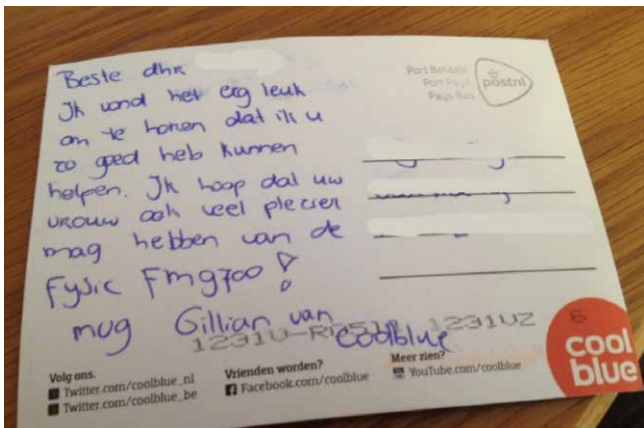 Beste dhr
Ik vond het erg leuk
om te horen dat ik u
zo goed heb kunnen
helpen. Ik hoop dat uw
vrouw ook veel plezier
mag hebben van de
Fysic Fm9700!
mvg Gillian van
Coolblue
Port Betaald
Port Payé
Pays-Bas
postnl
1231UZ
6
Volg ons.
Twitter.com/coolblue_nl
Twitter.com/coolblue_be
Vrienden worden?
Facebook.com/coolblue
Meer zien?
YouTube.com/coolblue
cool
blue